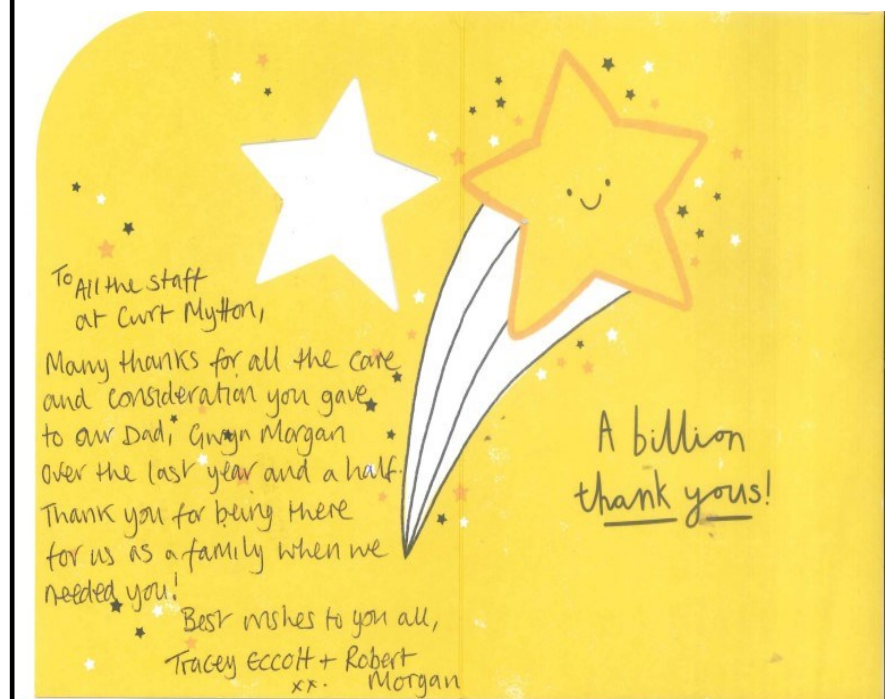 To All the staff
at Curt Mytton,
Many thanks for all the care
and consideration you gave
to our Dad, Gwyn Morgan
over the last year and a half.
Thank you for being there
for us as a family when we
needed you!
Best wishes to you all,
Tracey Eccott + Robert
xx. Morgan
A billion
thank yous!